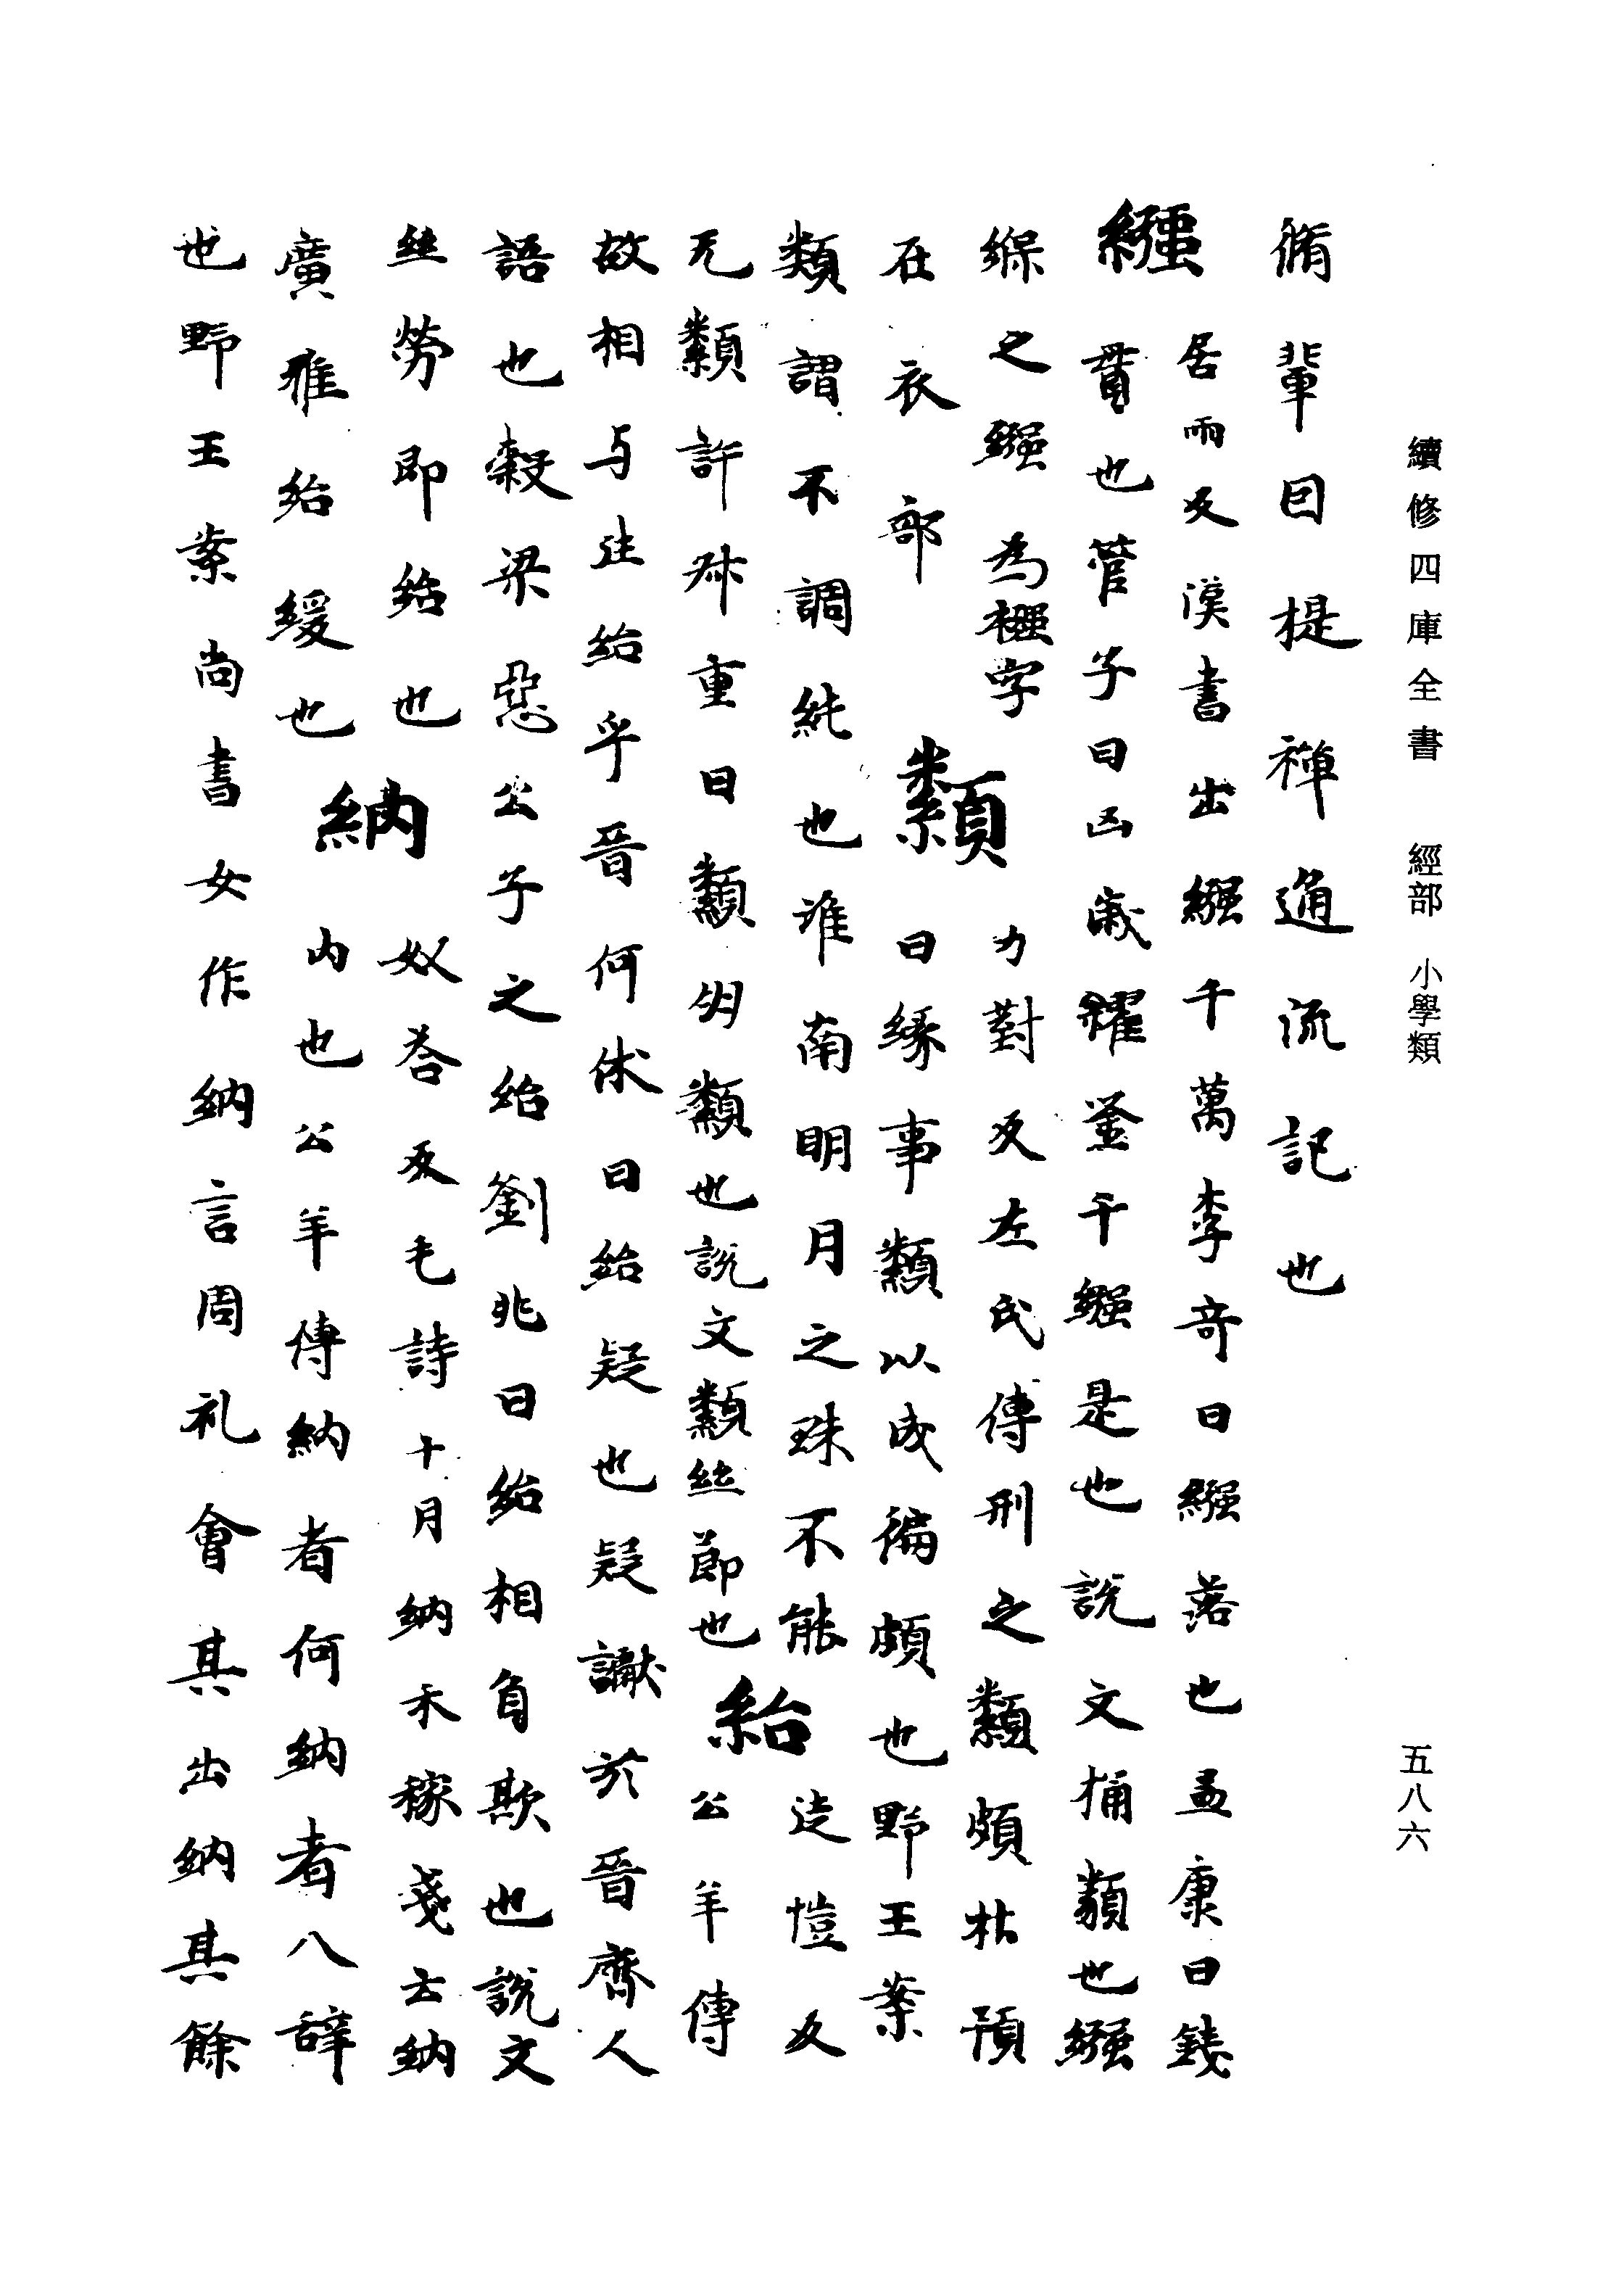 續修四庫全書 經部 小學類
五八六
脩輩因提禪通流記也
繈居雨反漢書出繈千萬李奇曰繈落也孟康曰錢
貫也管子曰凶歲糴釜千繈是也說文桷纇也繈
緥之繈為襁字
在衣部
纇力對反左氏傳刑之纇頗杜預
曰緣事纇以成偏頗也野王案
纇謂不調純也淮南明月之珠不能
无纇許叔重曰纇匆纇也說文纇絲節也
紿徒愷反公羊傳
故相与往紿乎晉何休曰紿疑也疑讞於晉齊人
語也穀梁惡公子之紿劉兆曰紿相負欺也說文
絲勞即紿也
廣雅紿緩也
納奴荅反毛詩十月納禾稼戔云納
內也公羊傳納者何納者入辞
也野王案尚書女作納言周礼會其出納其餘